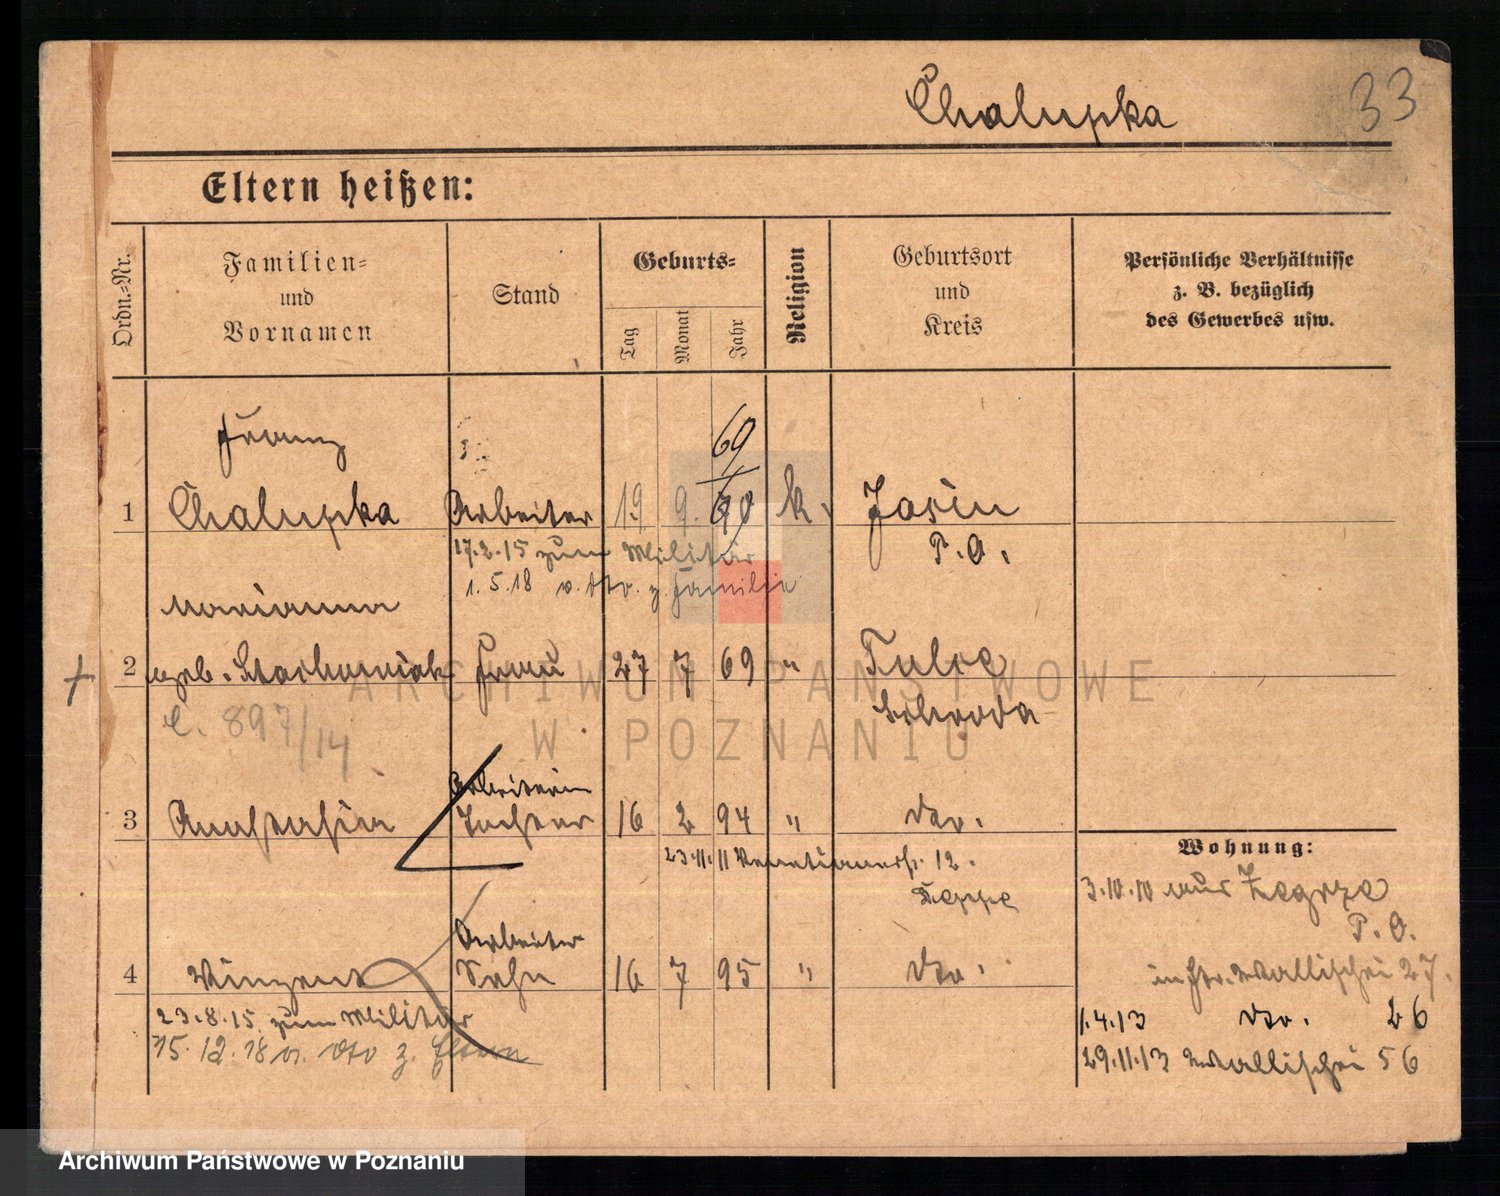 Chalupka 33
Eltern heißen:
Ordn.=Nr.
Familien=
und
Vornamen
Stand
Geburts=
Tag
Monat
Jahr
Religion
Geburtsort
und
Kreis
Persönliche Verhältnisse
z. B. bezüglich
des Gewerbes usw.
Franz 69
1 Chalupka Arbeiter 19. 9. 70 k. Jasin
P. O.
17.2.15 zum Militär
1.5.18 v. dto. z. Familie
Marianna
2 geb. Frau 27 7 69 " Tulce
Schroda
897/14
Arbeiterin
3 Anastasia Tochter 16 2 94 " dto.
23.11.11 Venetianerstr. 12.
Arbeiter
4 Vinzent Sohn 16 7 95 " dto.
23.8.15 zum Militär
15.12.18 v. dto z. Eltern
Wohnung:
3.10.10 aus Zegrze
P. O.
Wallischei 27.
1.4.13 dto. 26
29.11.13 Wallischei 56
ARCHIWUM PAŃSTWOWE
W POZNANIU
Archiwum Państwowe w Poznaniu